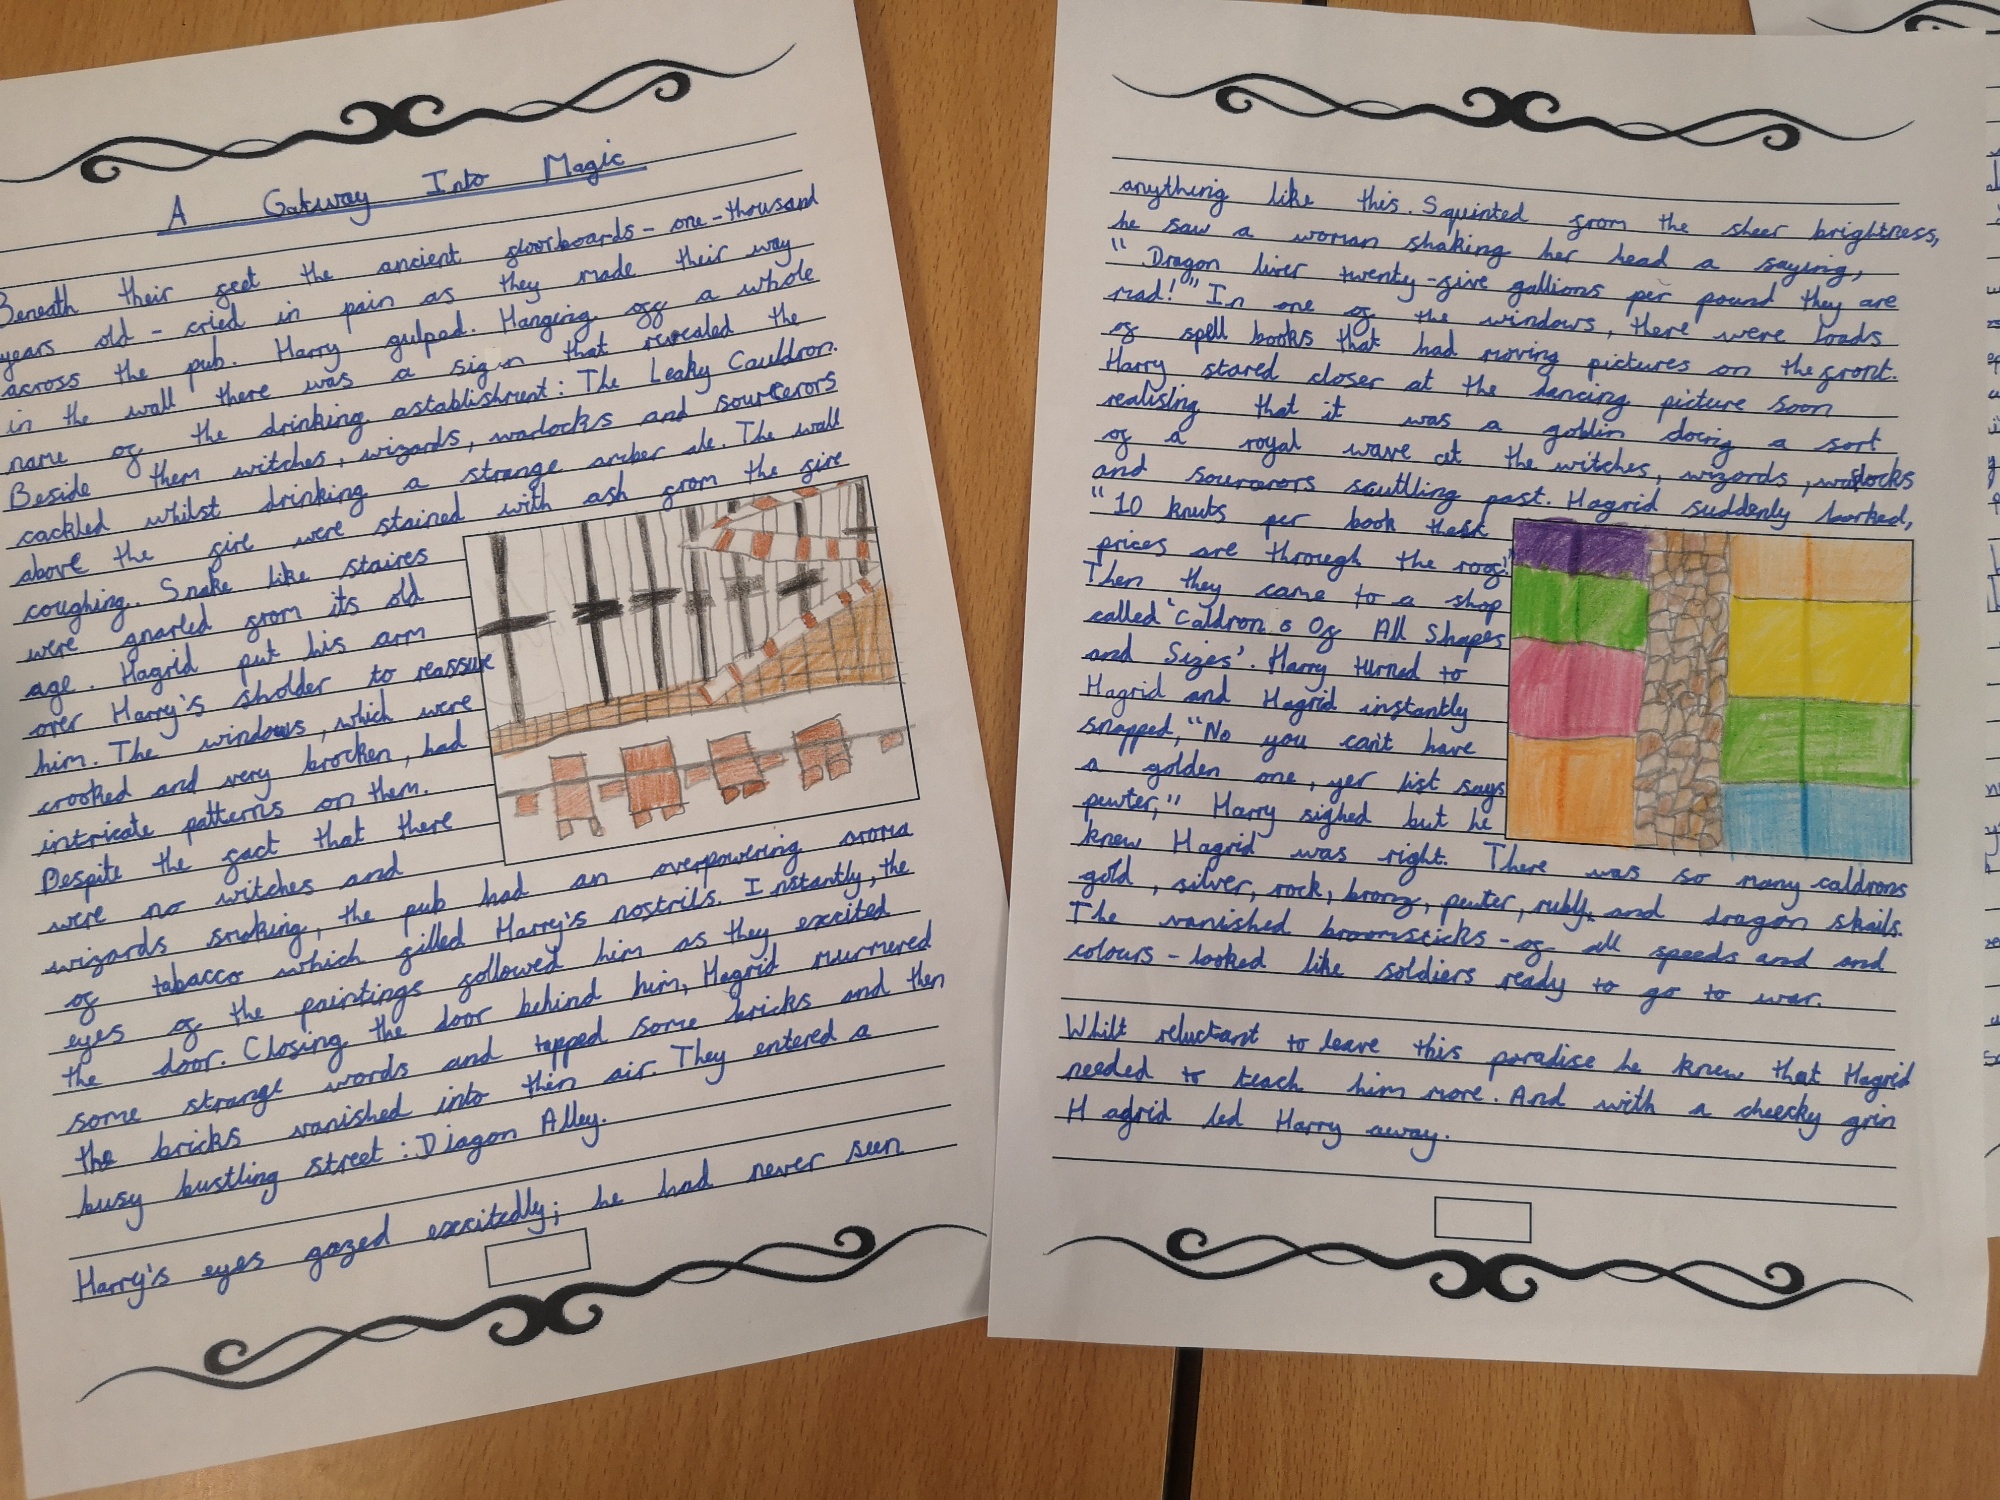 A Gateway Into Magic
Beneath their feet the ancient floorboards - one-thousand
years old - cried in pain as they made their way
across the pub. Harry gulped. Hanging off a whole
in the wall there was a sign that revealed the
name of the drinking astablishment: The Leaky Cauldron.
Beside them witches, wizards, warlocks and sourcerors
cackled whilst drinking a strange amber ale. The wall
above the fire were stained with ash from the fire
coughing. Snake like staires
were gnarled from its old
age. Hagrid put his arm
over Harry's sholder to reassure
him. The windows, which were
crooked and very brocken, had
intricate patterns on them.
Despite the fact that there
were no witches and
wizards smoking, the pub had an overpowering aroma
of tabacco which filled Harry's nostrils. Instantly, the
eyes of the paintings followed him as they excited
the door. Closing the door behind him, Hagrid murmered
some strange words and tapped some bricks and then
the bricks vanished into thin air. They entered a
busy bustling street: Diagon Alley.
Harry's eyes gazed excitedly; he had never seen
anything like this. Squinted from the sheer brightness,
he saw a woman shaking her head a saying,
"Dragon liver twenty-five gallions per pound they are
mad!" In one of the windows, there were loads
of spell books that had moving pictures on the front.
Harry stared closer at the dancing picture soon
realising that it was a goblin doing a sort
of a royal wave at the witches, wizards, warlocks
and sourcerors scuttling past. Hagrid suddenly barked,
"10 knuts per book these
prices are through the roof!"
Then they came to a shop
called 'Caldrons Of All Shapes
and Sizes'. Harry turned to
Hagrid and Hagrid instantly
snapped, "No you can't have
a golden one, yer list says
pewter," Harry sighed but he
knew Hagrid was right. There was so many caldrons
gold, silver, rock, bronz, pewter, rubly, and dragon skails.
The vanished broomsticks - of all speeds and and
colours - looked like soldiers ready to go to war.
Whilt reluctant to leave this paradise he knew that Hagrid
needed to teach him more. And with a cheeky grin
Hagrid led Harry away.